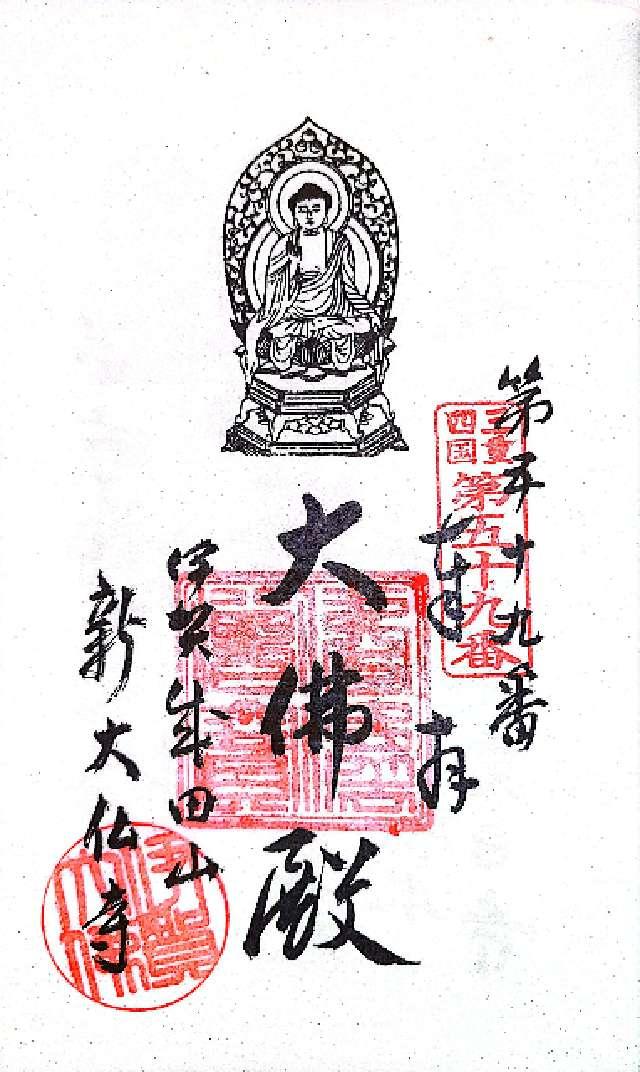 第五十九番
三重
四国
第五十九番
奉拝
大佛殿
伊賀成田山
新大仏寺